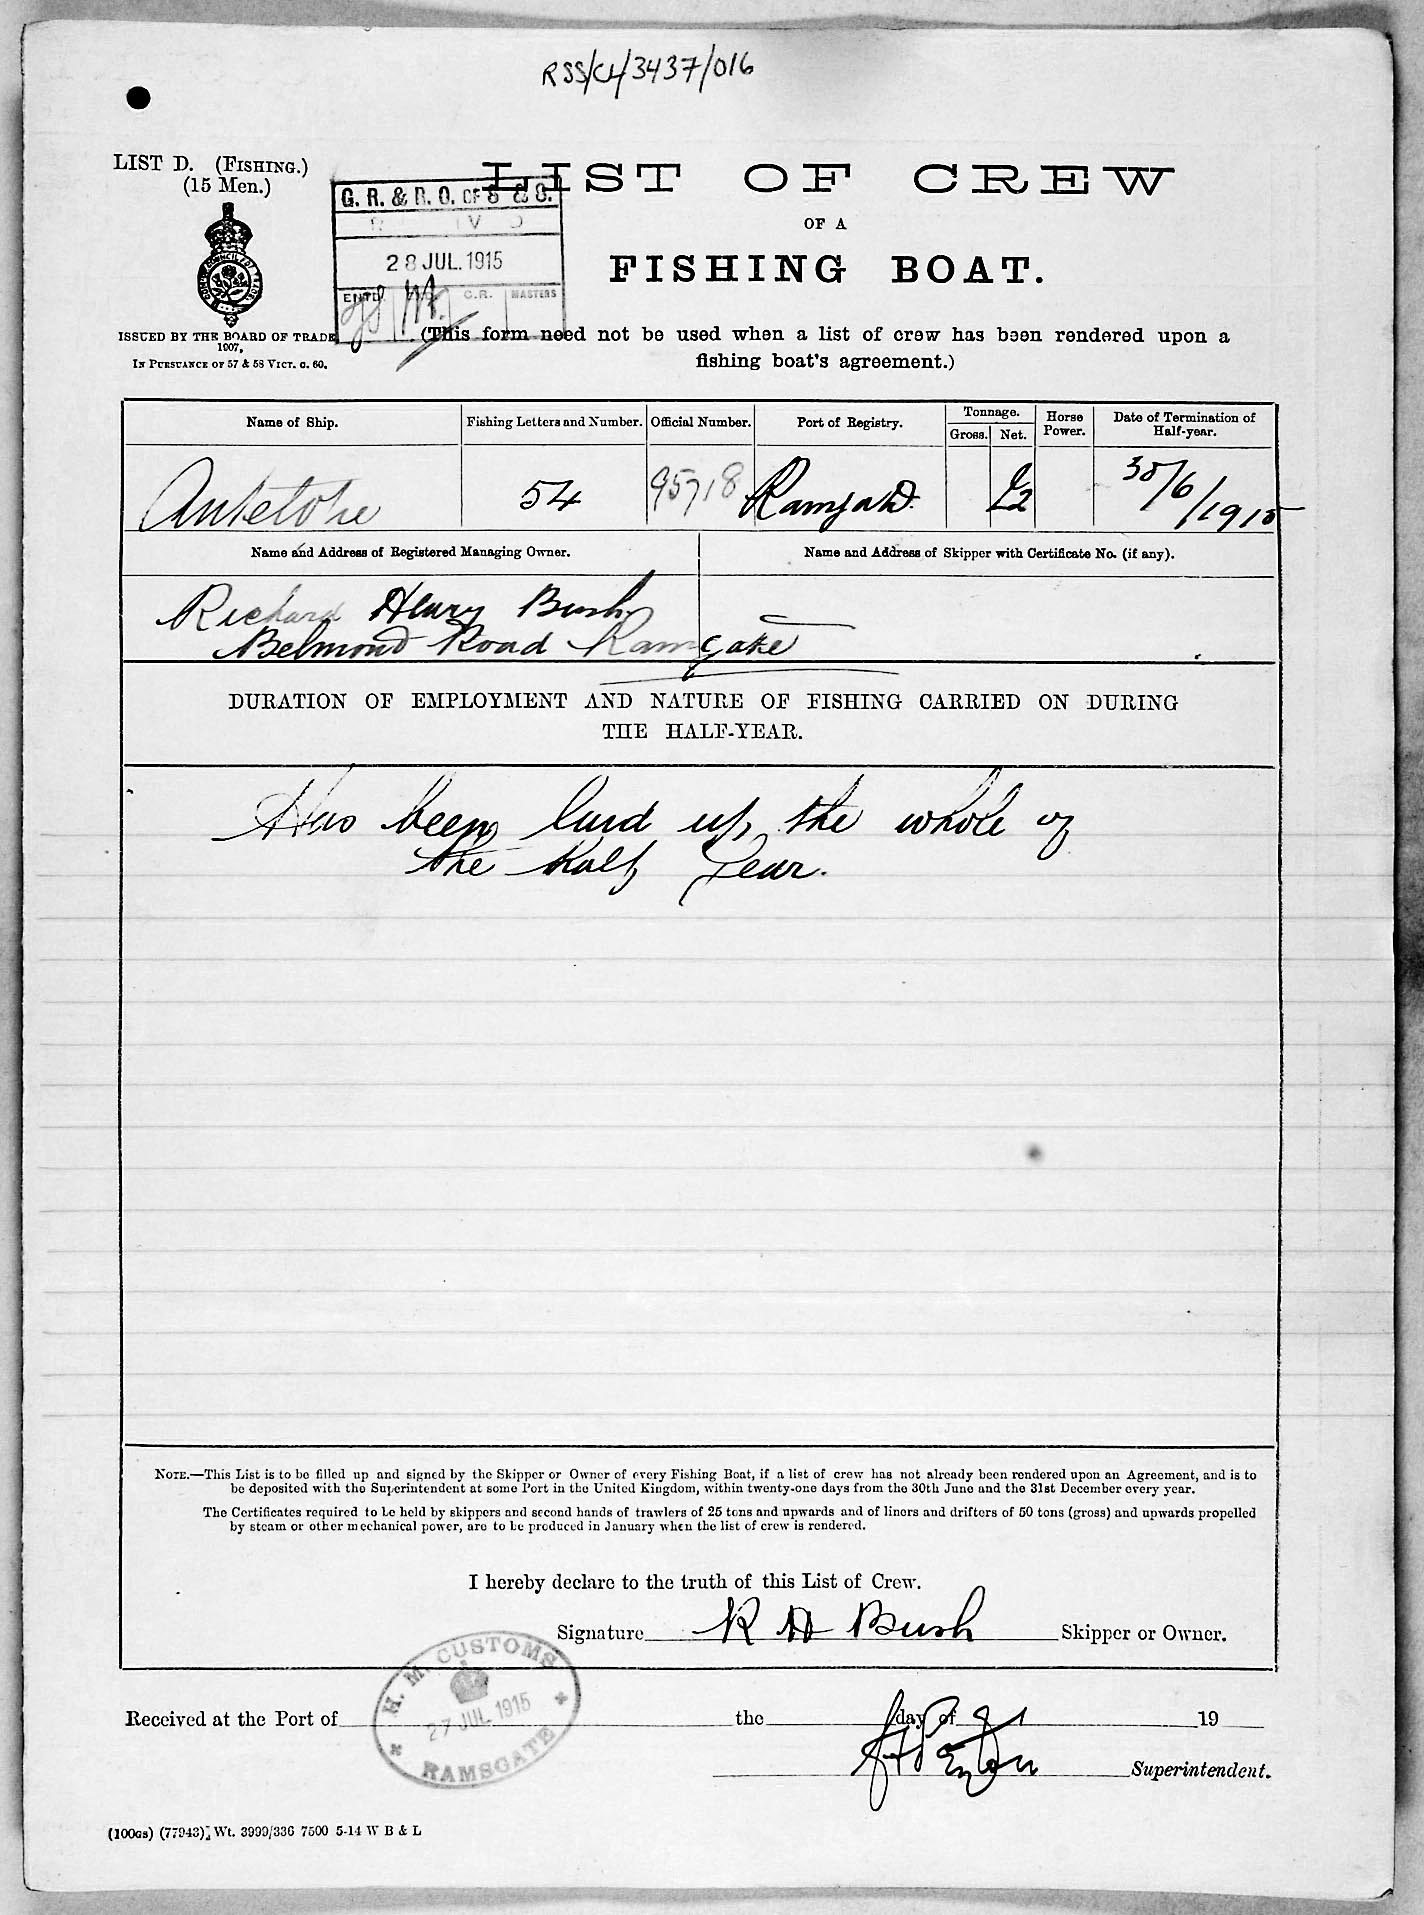 RSS/CL/3437/016
LIST D. (FISHING.)
(15 Men.)
ISSUED BY THE BOARD OF TRADE
1907,
IN PURSUANCE OF 57 & 58 VICT. C. 60.
G. R. & R. O. OF S & S.
28 JUL. 1915
ENTD. C.R. MASTERS
LIST OF CREW
OF A
FISHING BOAT.
(This form need not be used when a list of crew has been rendered upon a
fishing boat's agreement.)
Name of Ship. Fishing Letters and Number. Official Number. Port of Registry. Tonnage. Gross. Net. Horse Power. Date of Termination of Half-year.
Antelope 54 95718 Ramsgate 22 30/6/1915
Name and Address of Registered Managing Owner. Name and Address of Skipper with Certificate No. (if any).
Richard Henry Bush
Belmond Road Ramsgate
DURATION OF EMPLOYMENT AND NATURE OF FISHING CARRIED ON DURING
THE HALF-YEAR.
Has been laid up the whole of
the Half Year.
NOTE.—This List is to be filled up and signed by the Skipper or Owner of every Fishing Boat, if a list of crew has not already been rendered upon an Agreement, and is to
be deposited with the Superintendent at some Port in the United Kingdom, within twenty-one days from the 30th June and the 31st December every year.
The Certificates required to be held by skippers and second hands of trawlers of 25 tons and upwards and of liners and drifters of 50 tons (gross) and upwards propelled
by steam or other mechanical power, are to be produced in January when the list of crew is rendered.
I hereby declare to the truth of this List of Crew.
Signature R H Bush Skipper or Owner.
H. M. CUSTOMS
27 JUL 1915
RAMSGATE
Received at the Port of the day of 19
Superintendent.
(100GS) (77943) Wt. 3999/336 7500 5-14 W B & L